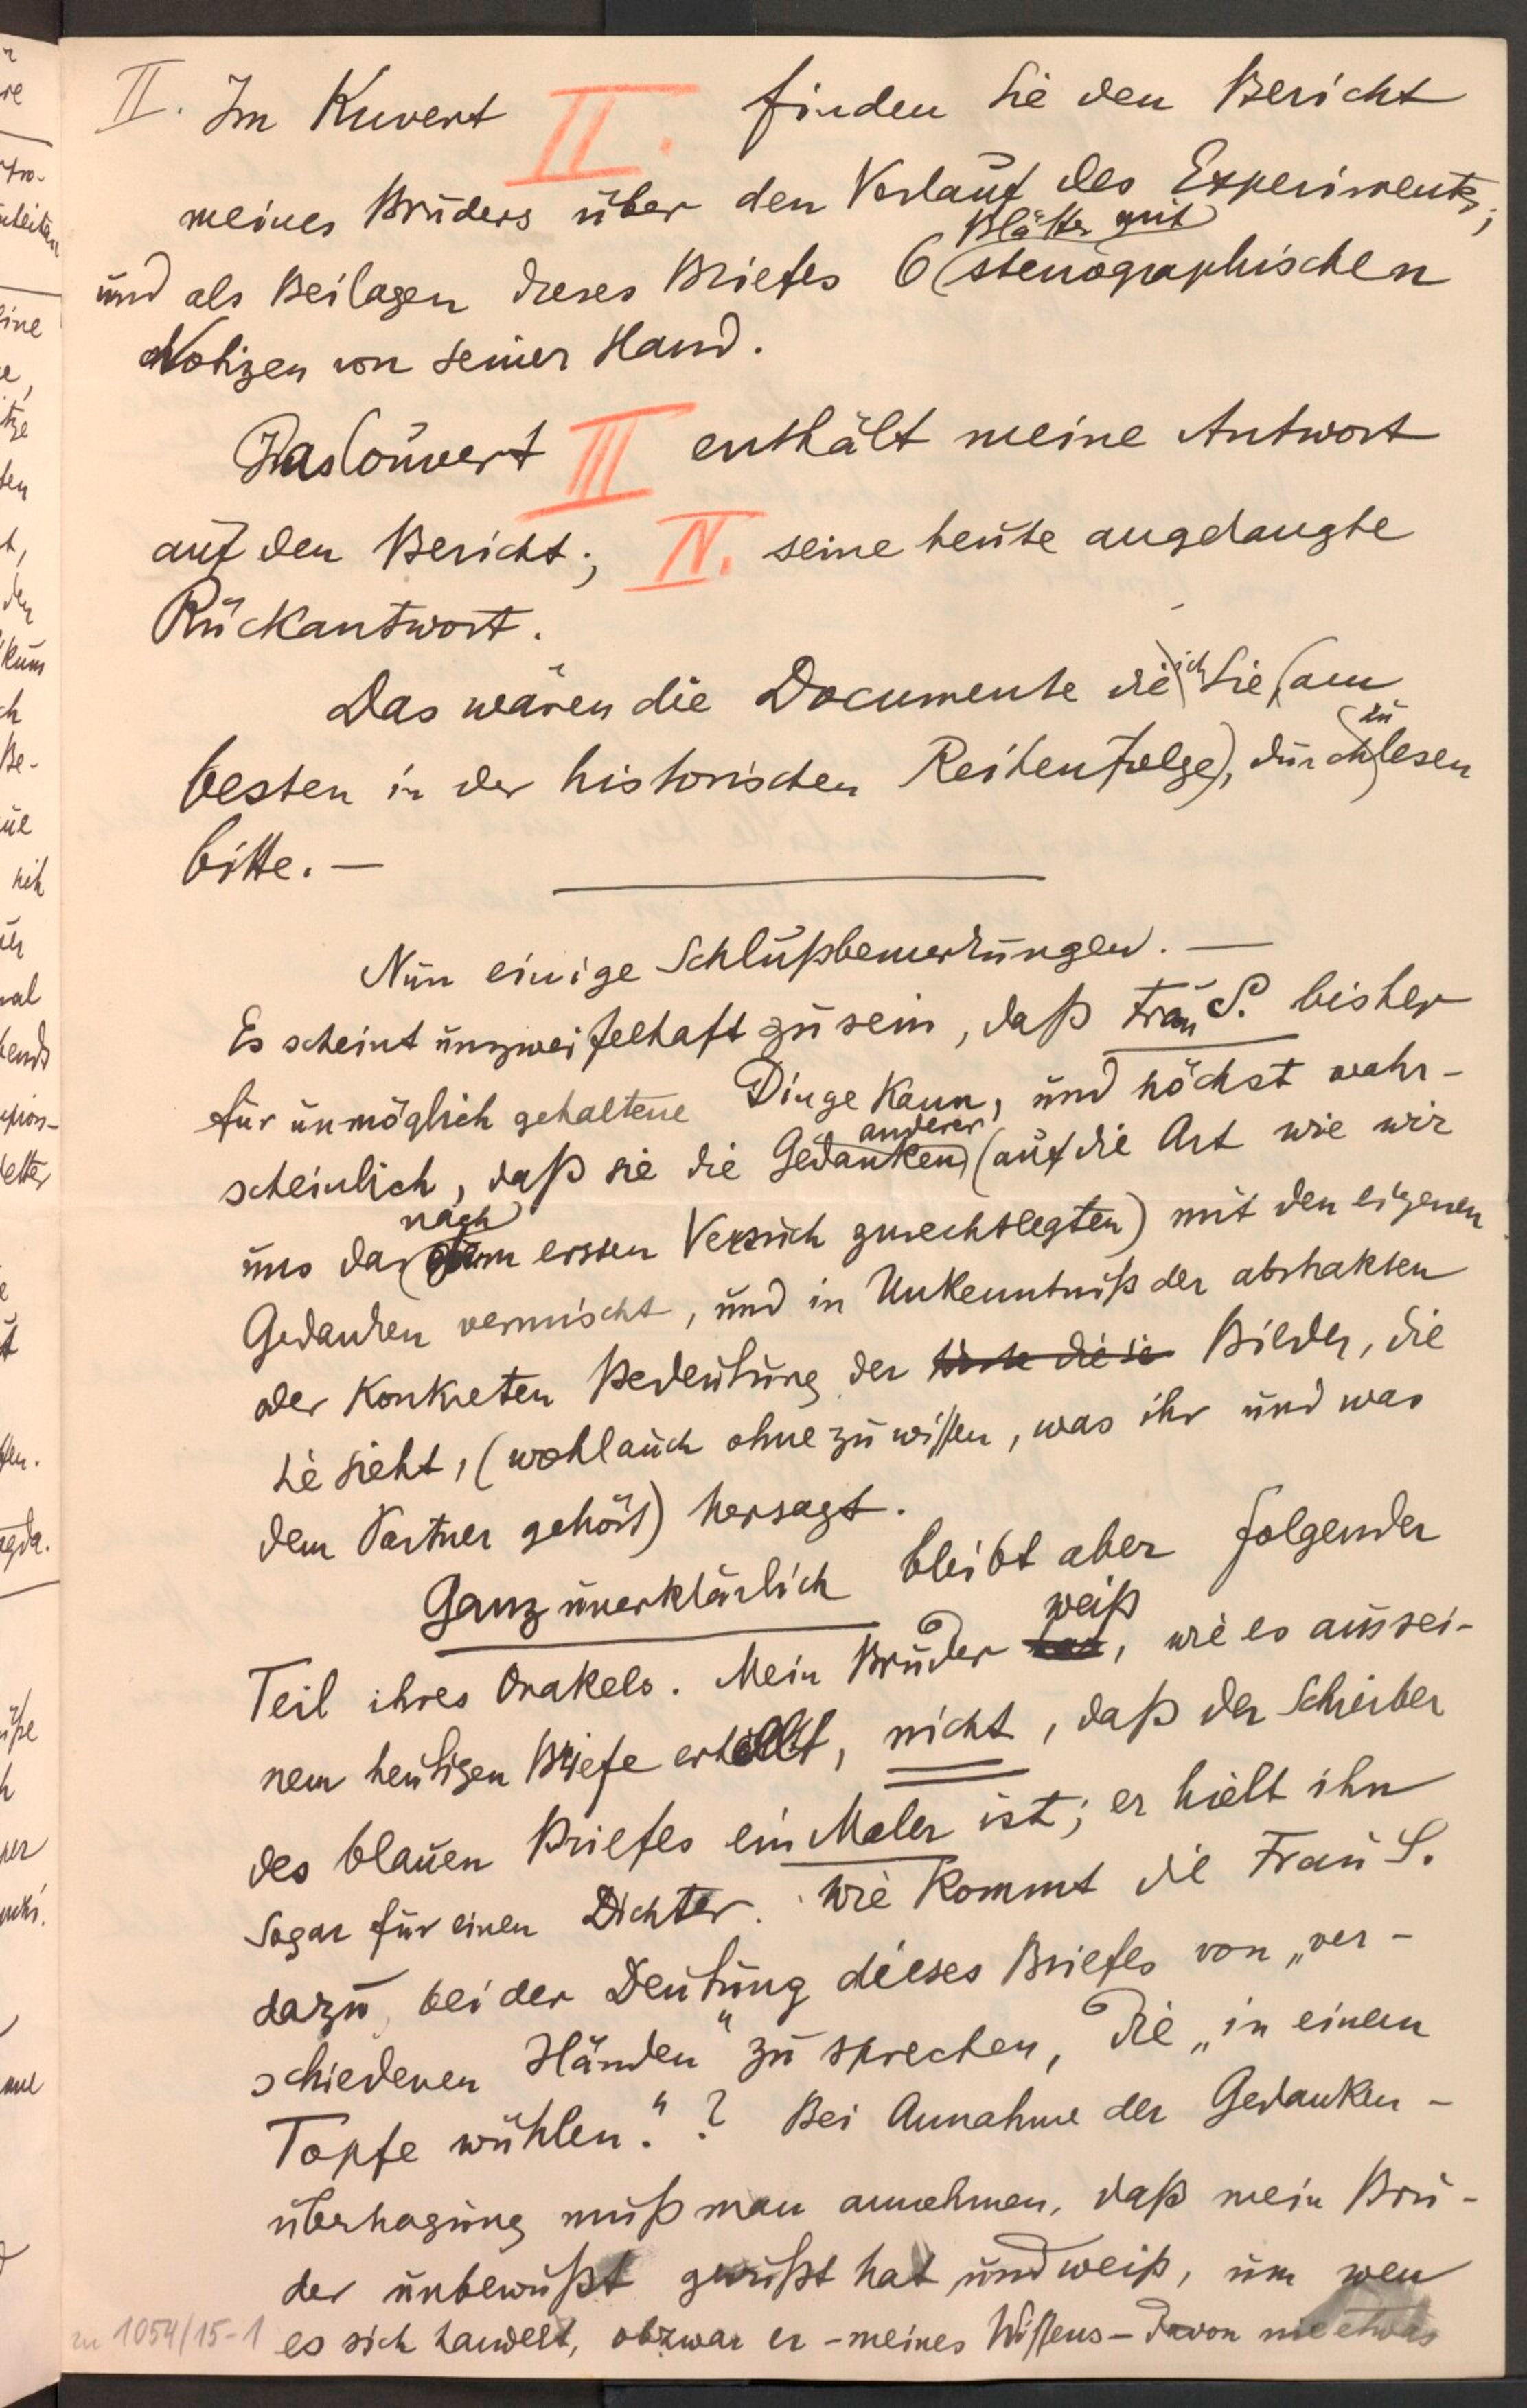 II. Im Kuvert II. finden Sie den Bericht
meines Bruders über den Verlauf des Experiments;
und als Beilagen dieses Briefes 6 (Blätter mit) stenographischen
Notizen von seiner Hand.
Das Couvert III enthält meine Antwort
auf den Bericht; IV. seine heute angelangte
Rückantwort.
Das wären die Documente die ich Sie, (am
besten in der historischen Reihenfolge), durchzulesen
bitte. —
Nun einige Schlußbemerkungen. —
Es scheint unzweifelhaft zu sein, daß Frau S. bisher
für unmöglich gehaltene Dinge kann, und höchst wahr-
scheinlich, daß sie die Gedanken anderer (auf die Art wie wir
uns das nach dem ersten Versuch zurechtlegten) mit den eigenen
Gedanken vermischt, und in Unkenntniß der abstrakten
oder konkreten Bedeutung der Bilder, die
sie sieht, (wohl auch ohne zu wissen, was ihr und was
dem Partner gehört) hersagt.
Ganz unerklärlich bleibt aber folgender
Teil ihres Orakels. Mein Bruder weiß, wie es aus sei-
nem heutigen Briefe erhellt, nicht, daß der Schreiber
des blauen Briefes ein Maler ist; er hielt ihn
sogar für einen Dichter. Wie kommt die Frau S.
dazu, bei der Deutung dieses Briefes von „ver-
schiedenen Händen" zu sprechen, die „in einem
Topfe wühlen."? Bei Annahme der Gedanken-
übertragung muß man annehmen, daß mein Bru-
der unbewußt gewußt hat und weiß, um wen
es sich handelt, obzwar er - meines Wissens - davon nie etwas
zu 1054/15-1